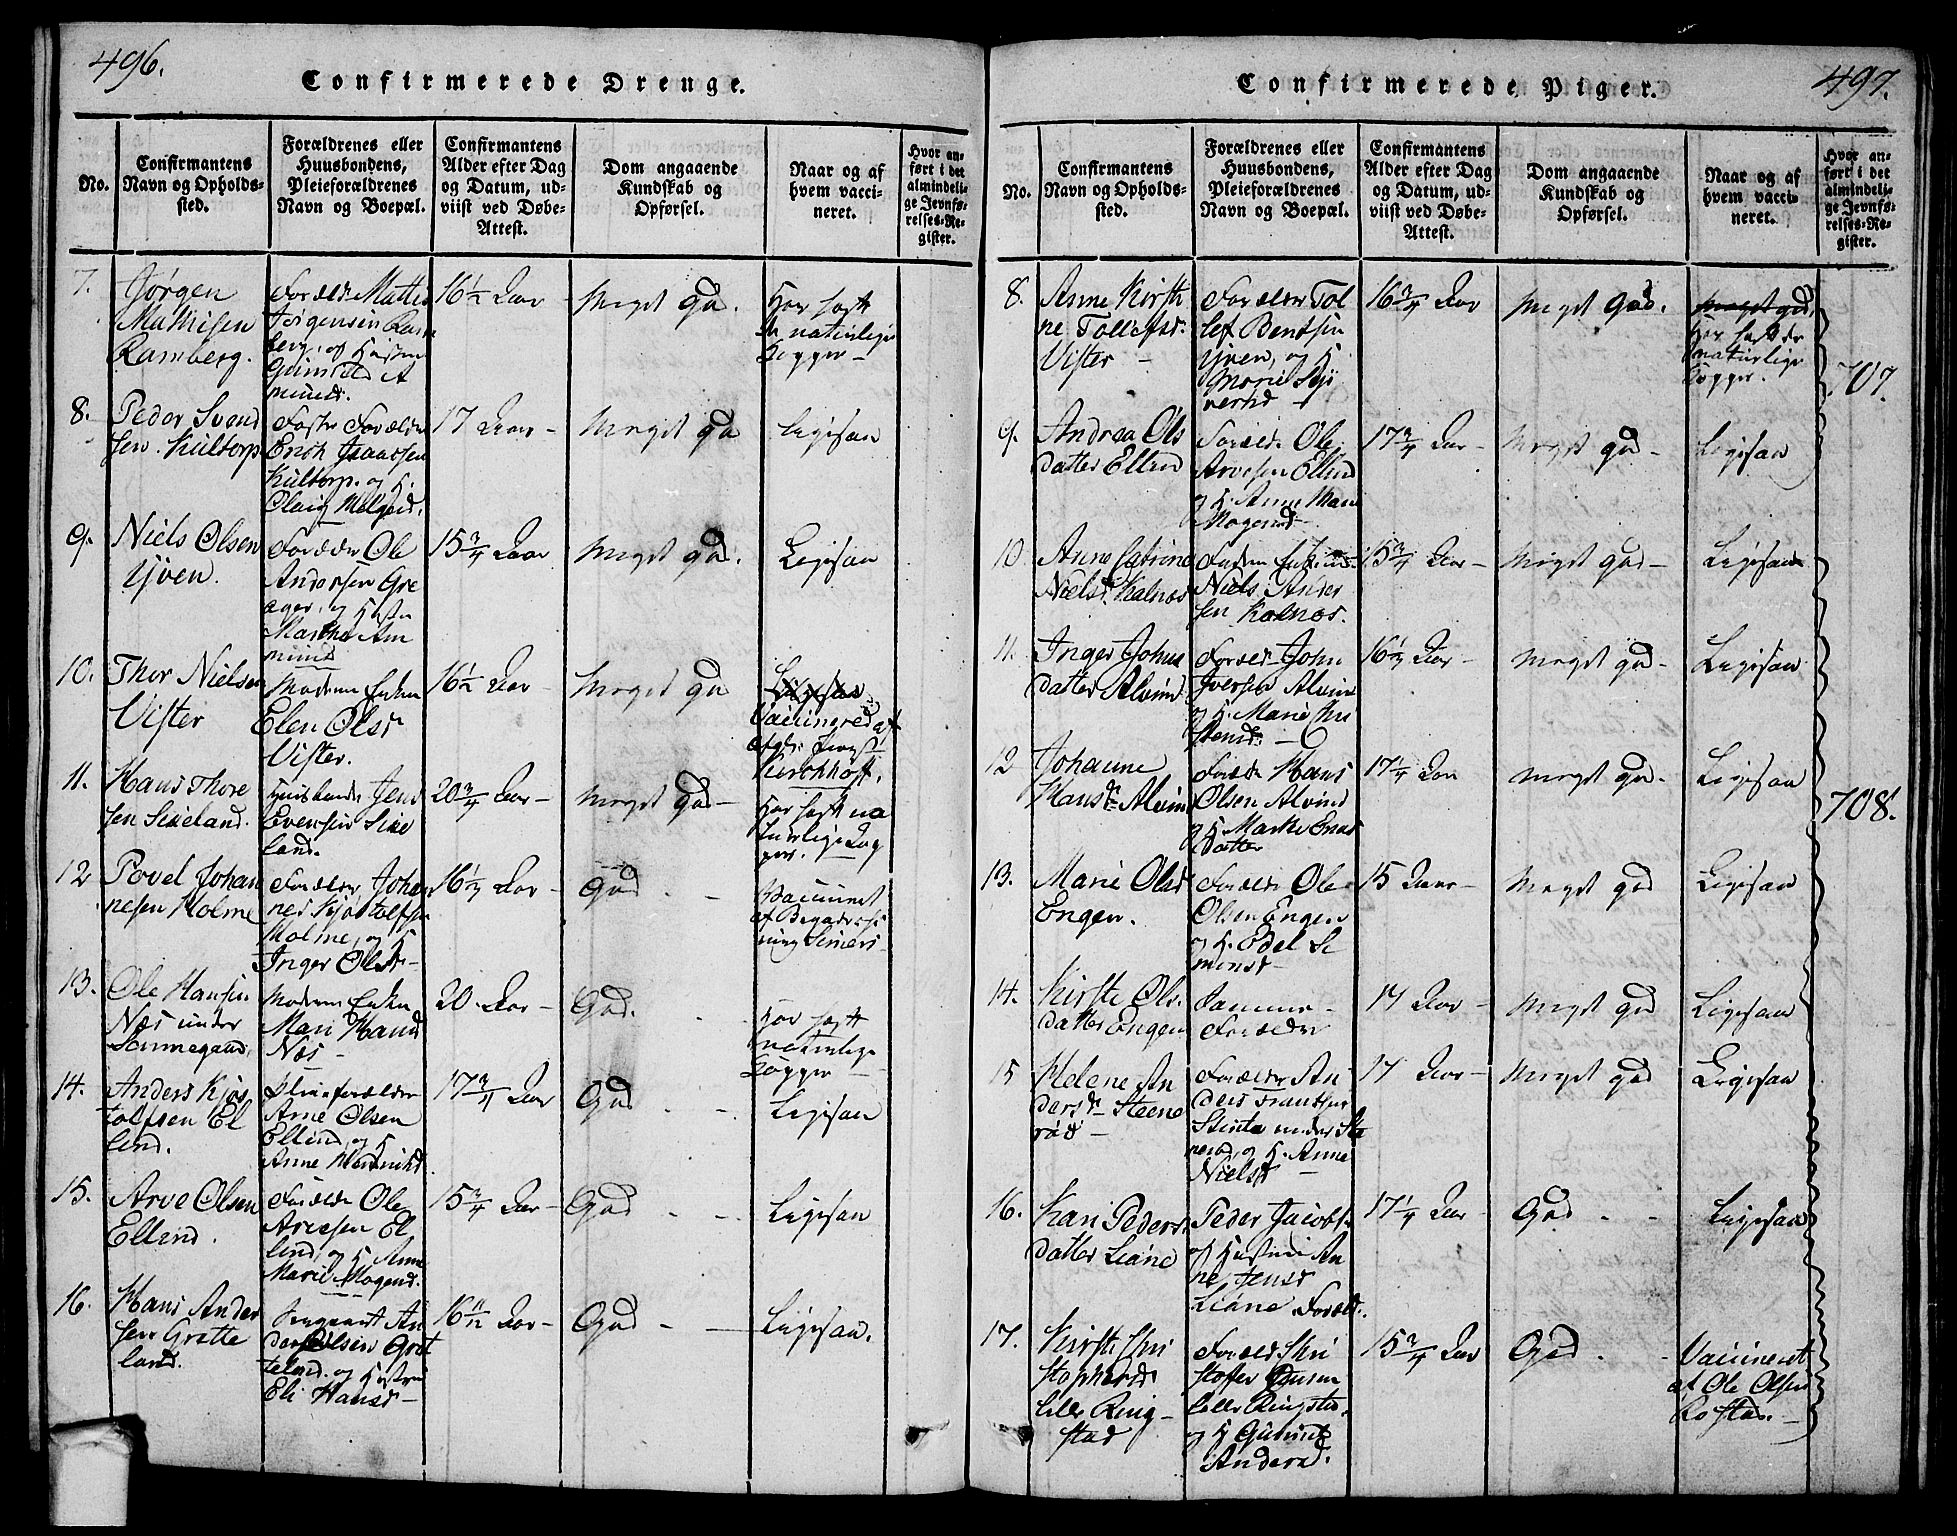 496.
Confirmerede Drenge.
No.
Confirmantens
Navn og Opholds-
sted.
Forældrenes eller
Huusbondens,
Pleieforældrenes
Navn og Boepæl.
Confirmantens
Alder efter Dag
og Datum, ud-
viist ved Døbe-
Attest.
Dom angaaende
Kundskab og
Opførsel.
Naar og af
hvem vacci-
neret.
Hvor an-
ført i det
almindeli-
ge Jevnfø-
relses-Re-
gister.
7.
Jørgen
Mathisen
Ramberg.
Forældr Mattis
Jørgensen Ram
berg, og Hustru
Gunnild A
mund.
16 1/2 Aar
Meget god.
Har havt
de naturlige
Kopper
8.
Peder Svend
sen Kultorp
Foster Forældre
Erich Isaacsen
Kultorp. og H.
17 Aar
Meget god
Ligesaa
9.
Niels Olsen
Yven.
Forældre Ole
Andersen Gre
ager, og Hustru
Martha Am
mund
15 3/4 Aar
Meget god.
Ligesaa
10.
Thor Nielsen
Vister
Moderen Enken
Elen Olsd
Vister.
16 1/2 Aar
Meget god
Ligesaa
Vaccinered af
Kirchhoff.
11.
Hans Thore
sen Sikeland.
Huusbonde Jens
Evensen Sike
land.
20 3/4 Aar
Meget god
Har havt na
turlige Kop
per.
12
Povel Johan
nesen Holme
Forældre Johan
nes Kjøstolfsen
Holme, og H
Inger Olsd
16 1/2 Aar
God
Vaccineret
af
13.
Ole Hansen
Næs under
Moderen Enken
Mari Hansd
Næs
20. Aar
God.
Har havt
naturlige
Kopper
14.
Anders Kjøs
tolfsen El
lind.
Pleieforældre
Arne Olsen
Ellind, og H
Anne
17 3/4 Aar
God
Ligesaa
15.
Arve Olsen
Ellind.
Forældre Ole
Arvesen El
lind, og H Anne
Marie Mogensd.
15 3/4 Aar
God
Ligesaa
16.
Hans Ander
sen Grotte
land.
An
ders Olsen Grot
teland. og Hustru
Eli Hansd
16 11/12 Aar
God
Ligesaa.
Confirmerede Piger.
497.
No.
Confirmantens
Navn og Opholds-
sted.
Forældrenes eller
Huusbondens,
Pleieforældrenes
Navn og Boepæl.
Confirmantens
Alder efter Dag
og Datum, ud-
viist ved Døbe-
Attest.
Dom angaaende
Kundskab og
Opførsel.
Naar og af
hvem vacci-
neret.
Hvor an-
ført i det
almindeli-
ge Jevnfø-
relses-Re-
gister.
8.
Anne Kirsti
ne Tollefsd.
Vister
Forældre Tol
lef Bendtsen
Yven, og H
Marie Sy
vertsd
16 3/4 Aar
Meget god.
Meget god.
Har havt de
naturlige
Kopper.
707.
9.
Andrea Ols
datter Ellind
Forældre Ole
Arvesen Ellind
og H. Anne Marie
Mogensd
17 3/4 Aar
Meget god
Ligesaa
10.
Anne Catrine
Nielsd. Kalnæs
Niels Ander
sen Kalnæs.
15 3/4 Aar
Meget god
Ligesaa
11.
Inger Johns
datter Alvim
Forældre John
Iversen Alvim
og H. Marie Chri
stensd.
16 1/2 Aar
Meget god
Ligesaa
12
Johanne
Hansdr. Alvim
Forældre Hans
Olsen Alvim
og H. Marthe Enas
datter
17 1/4 Aar
Meget god
Ligesaa
708.
13.
Marie Olsd
Engen.
Forældre Ole
Olsen Engen
og H. Edel Si
monsd
15 Aar
Meget god
Ligesaa
14.
Kirsti Ols
datter Engen
Samme
Forældre
17 Aar
Meget god
Ligesaa
15
Helene An
dersdr. Steene
rød
Forældre An
ders Frantsen
under Ste
nerød, og H. Anne
Nielsd
17 Aar
Meget god
Ligesaa
16.
Kari Peders
datter Liane
Peder Jacobs.
og Hustrue An
ne Jensd
Liane Foræld.
17 1/4 Aar
God
Ligesaa
17.
Kirsti Chri
stophersd
Lille Ring
stad
Forældr Chri
stofer
Lille Ringsta,
og H Gunnild
Andersd.
15 3/4 Aar
God
Vaccineret
af Ole Olsen
Rostad.